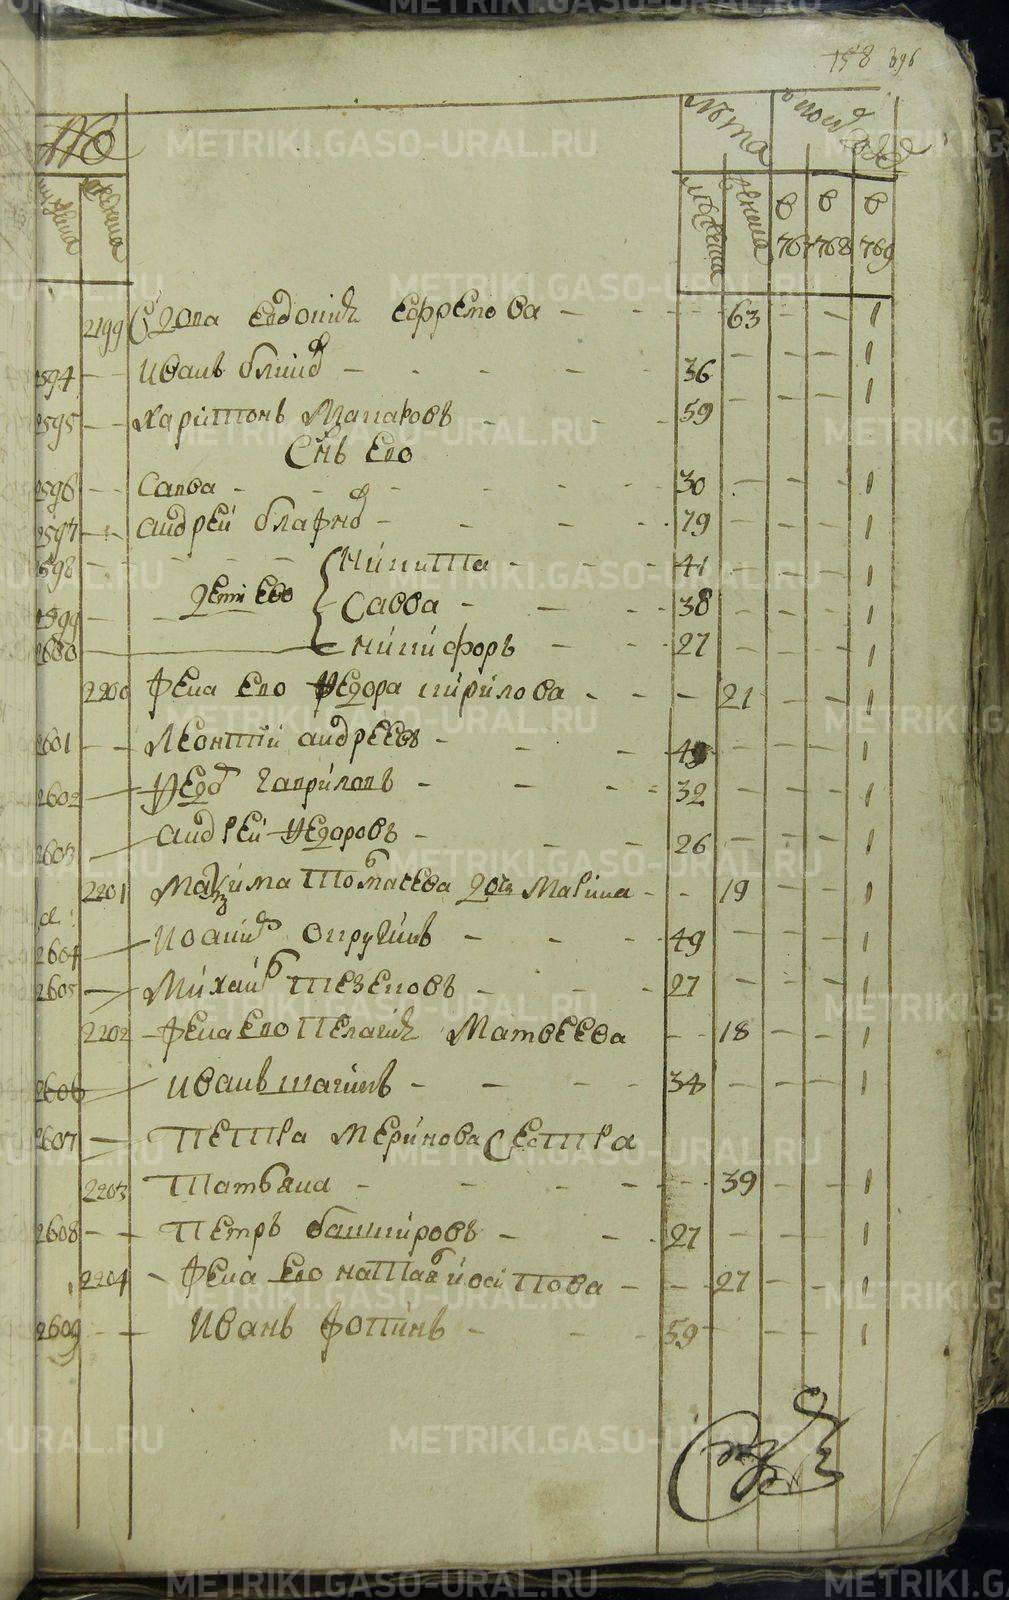 158 396
№ лѣта
мужеска женска мужеска женска в 767 в 768 в 769
2199 Вдова Евдокия Ефремова 63 1
2594 Иванъ 36 1
2595 Харитонъ Макаровъ 59 1
Снъ Его
2596 Савва 30 1
2597 андрей 79 1
2598 Никита 41 1
2599 дети Ево Савва 38 1
2600 Никифоръ 27 1
2200 жена Ево Федора кирилова 21 1
2601 Леонтий андреевъ 45 1
2602 Федо Гаврилов 32 1
2603 андрей Федоровъ 26 1
2201 Мазима дочь Марина 19 1
2604 49 1
2605 Михаил 27 1
2202 жена Ево Пелагия Матвеева 18 1
2606 Иванъ шагинъ 34 1
2607 Петра Меринова Сестра
2203 Татьяна 39 1
2608 Петръ башкировъ 27 1
2204 жена Ево Наталья осипова 27 1
2609 Иванъ Фотинъ 59 1
METRIKI.GASO-URAL.RU